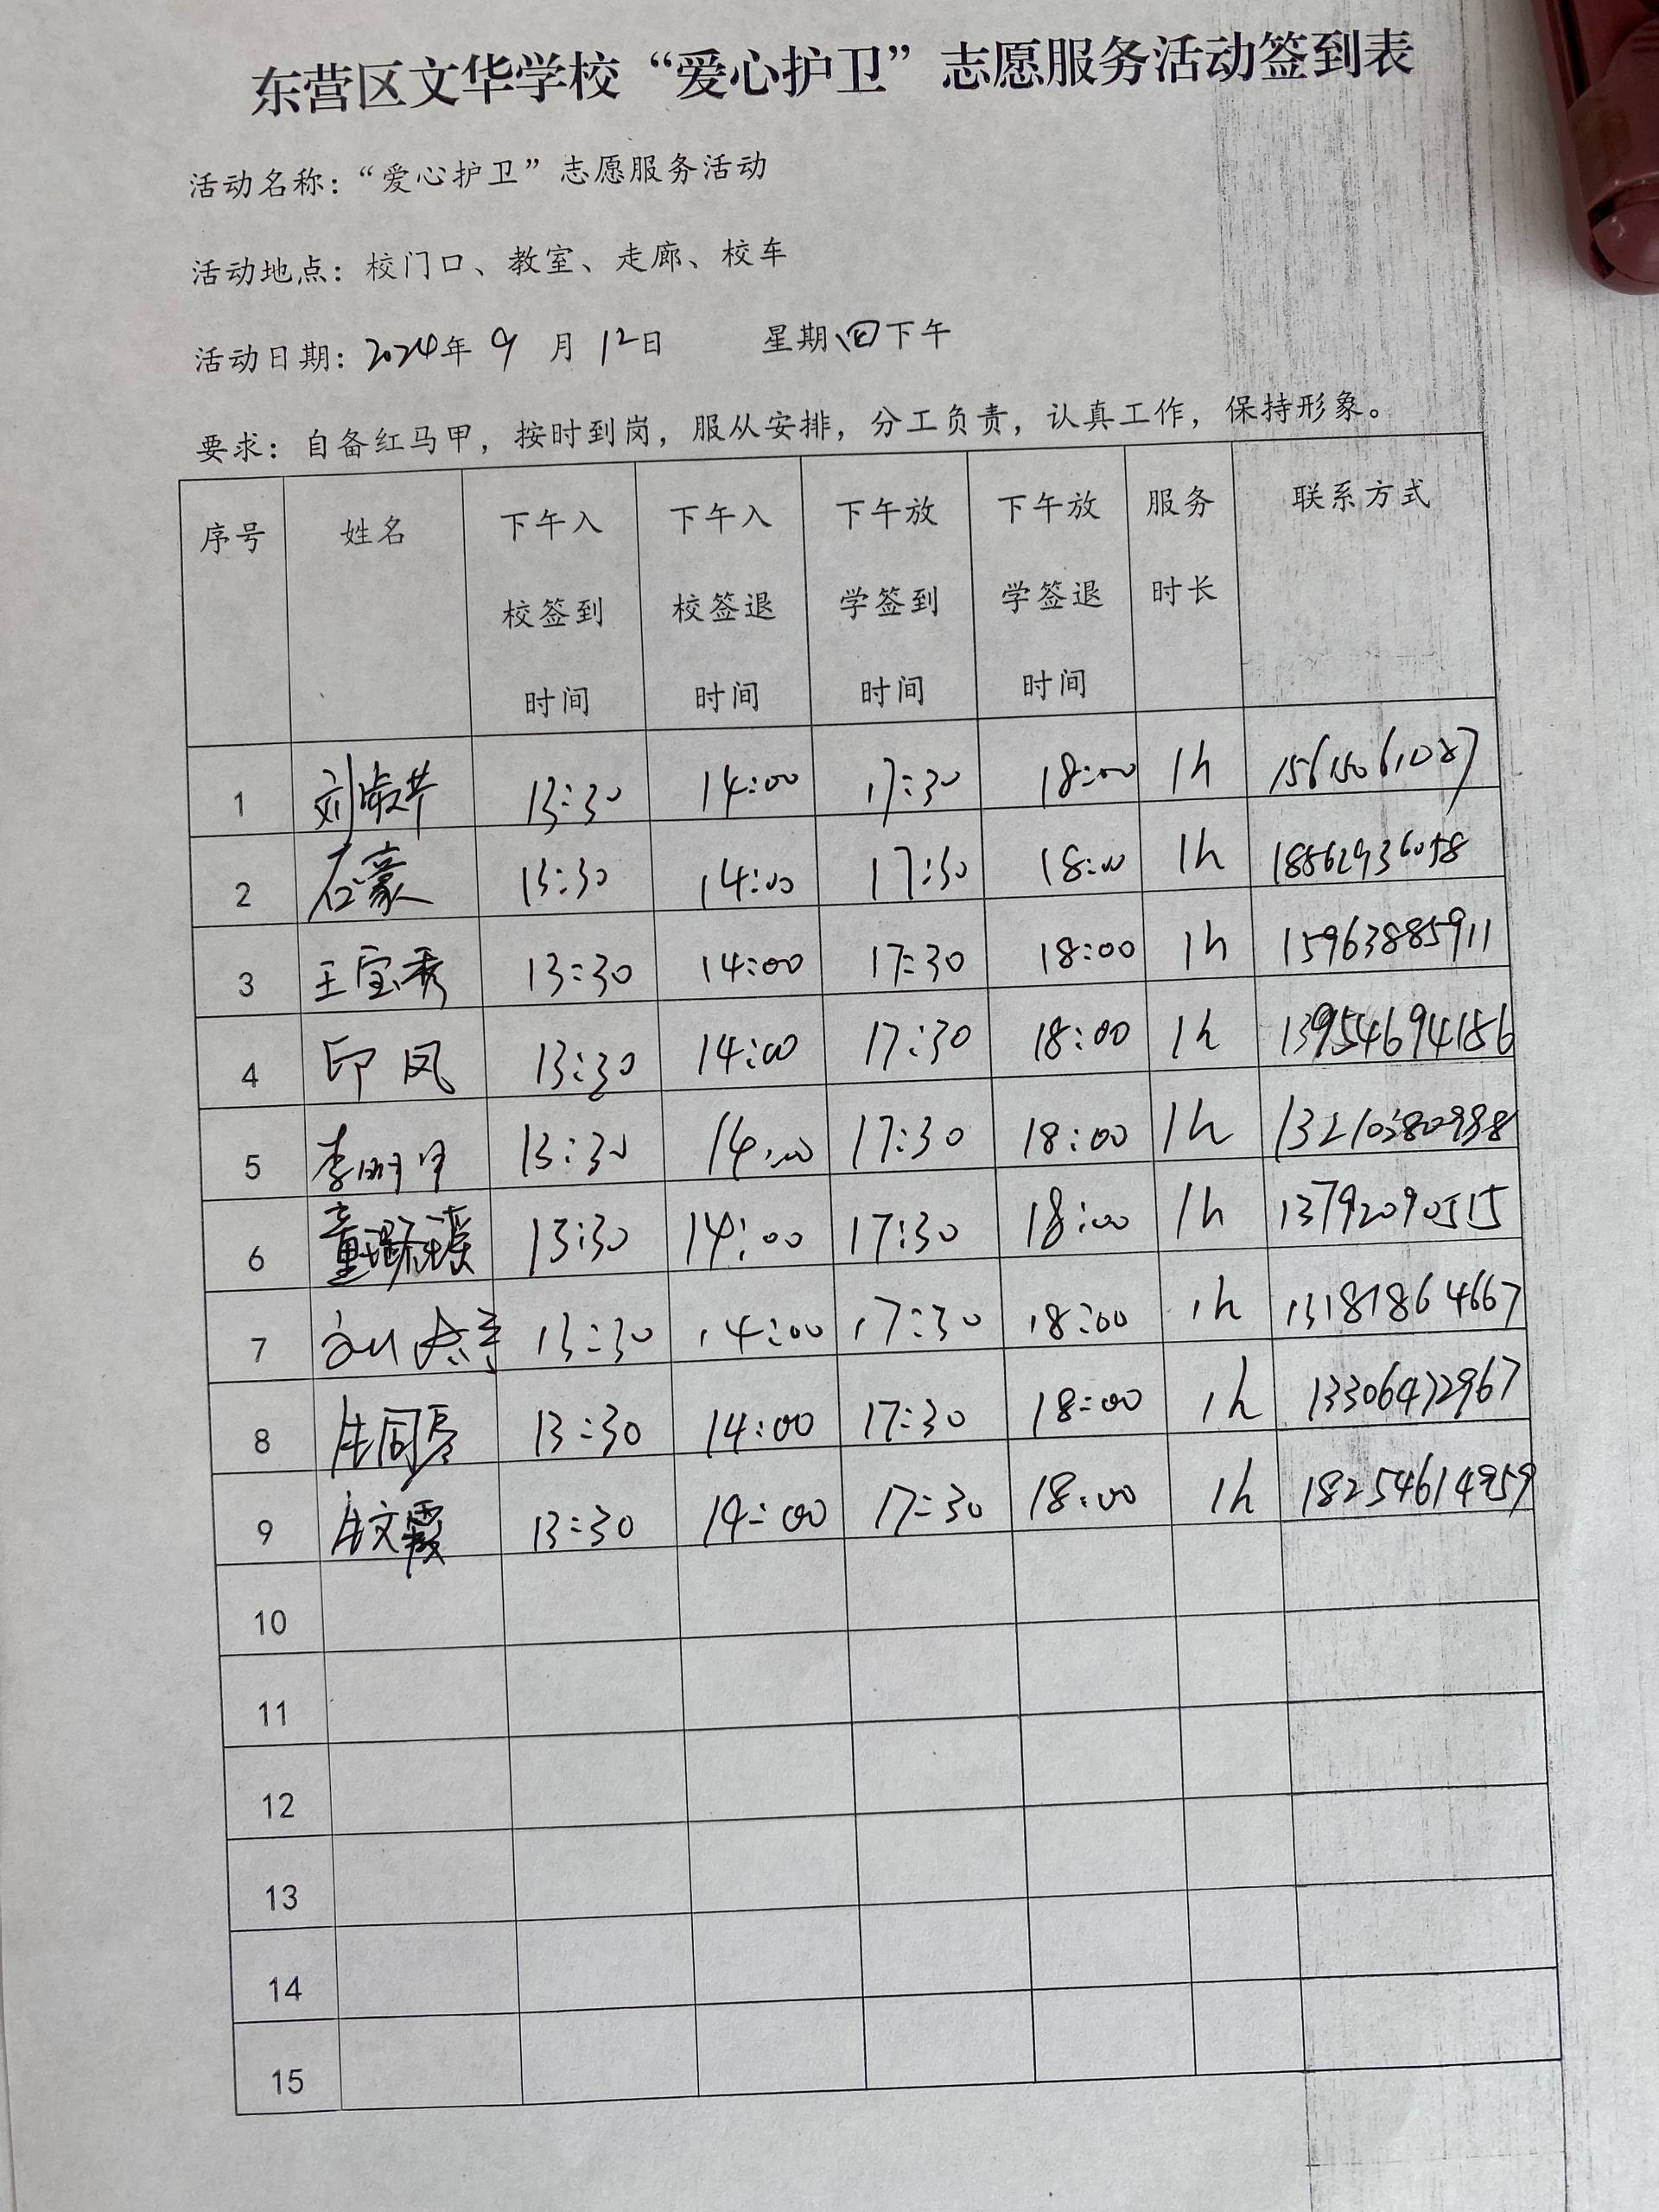 东营区文华学校“爱心护卫”志愿服务活动签到表
活动名称：“爱心护卫”志愿服务活动
活动地点：校门口、教室、走廊、校车
活动日期：2024年 9 月 12日 星期四下午
要求：自备红马甲，按时到岗，服从安排，分工负责，认真工作，保持形象。
序号 姓名 下午入校签到时间 下午入校签退时间 下午放学签到时间 下午放学签退时间 服务时长 联系方式
1 刘淑芹 13:30 14:00 17:30 18:00 1h 15615061087
2 石豪 13:30 14:00 17:30 18:00 1h 18562936058
3 王宝秀 13:30 14:00 17:30 18:00 1h 15963885911
4 印凤 13:30 14:00 17:30 18:00 1h 13954694156
5 李 13:30 14:00 17:30 18:00 1h
6 童 13:30 14:00 17:30 18:00 1h 13792090515
7 13:30 14:00 17:30 18:00 1h 13181864667
8 13:30 14:00 17:30 18:00 1h 13306472967
9 文霞 13:30 14:00 17:30 18:00 1h 18254614959
10
11
12
13
14
15